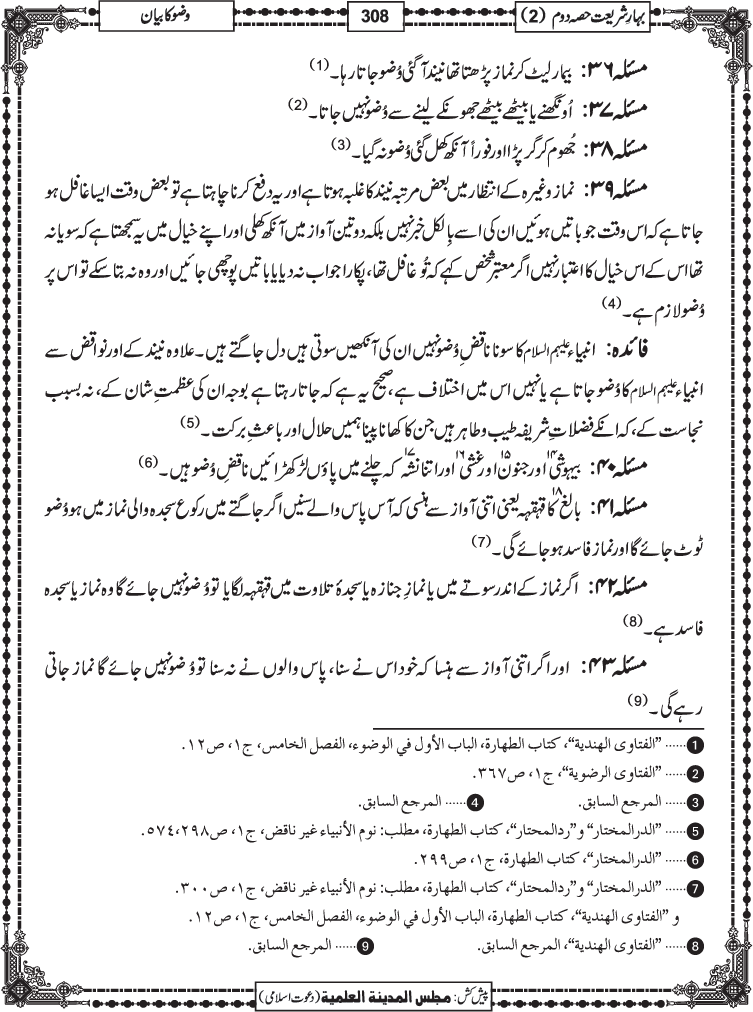 بہارِ شریعت حصہ دوم (2)
308
وضو کا بیان
مسئلہ ۳۶: بیمار لیٹ کر نماز پڑھتا تھا نیند آ گئی وُضو جاتا رہا۔ (1)
مسئلہ ۳۷: اُونگھنے یا بیٹھے بیٹھے جھونکے لینے سے وُضو نہیں جاتا۔ (2)
مسئلہ ۳۸: جُھوم کر گر پڑا اور فوراً آنکھ کھل گئی وُضو نہ گیا۔ (3)
مسئلہ ۳۹: نماز وغیرہ کے انتظار میں بعض مرتبہ نیند کا غلبہ ہوتا ہے اور یہ دفع کرنا چاہتا ہے تو بعض وقت ایسا غافل ہو
جاتا ہے کہ اس وقت جو باتیں ہوئیں ان کی اسے بِالکل خبر نہیں بلکہ دو تین آواز میں آنکھ کھلی اور اپنے خیال میں یہ سمجھتا ہے کہ سویا نہ
تھا اس کے اس خیال کا اعتبار نہیں اگر معتبر شخص کہے کہ تُو غافل تھا، پکارا جواب نہ دیا یا باتیں پوچھی جائیں اور وہ نہ بتا سکے تو اس پر
وُضو لازم ہے۔ (4)
فائدہ: انبیاء علیہم السلام کا سونا ناقضِ وُضو نہیں ان کی آنکھیں سوتی ہیں دل جاگتے ہیں۔ علاوہ نیند کے اور نواقض سے
انبیاء علیہم السلام کا وُضو جاتا ہے یا نہیں اس میں اختلاف ہے، صحیح یہ ہے کہ جاتا رہتا ہے بوجہ ان کی عظمتِ شان کے، نہ بسبب
نجاست کے، کہ انکے فضلاتِ شریفہ طیب و طاہر ہیں جن کا کھانا پینا ہمیں حلال اور باعثِ برکت۔ (5)
مسئلہ ۴۰: بیہوشی۱۴ اور جنون۱۵ اور غشی۱۶ اور اتنا نشہ۱۷ کہ چلنے میں پاؤں لڑکھڑائیں ناقضِ وُضو ہیں۔ (6)
مسئلہ ۴۱: بالغ۱۸ کا قہقہہ یعنی اتنی آواز سے ہنسی کہ آس پاس والے سنیں اگر جاگتے میں رکوع سجدہ والی نماز میں ہو وُضو
ٹوٹ جائے گا اور نماز فاسد ہو جائے گی۔ (7)
مسئلہ ۴۲: اگر نماز کے اندر سوتے میں یا نمازِ جنازہ یا سجدۂ تلاوت میں قہقہہ لگایا تو وُضو نہیں جائے گا وہ نماز یا سجدہ
فاسد ہے۔ (8)
مسئلہ ۴۳: اور اگر اتنی آواز سے ہنسا کہ خود اس نے سنا، پاس والوں نے نہ سنا تو وُضو نہیں جائے گا نماز جاتی
رہے گی۔ (9)
1 ...... ”الفتاوى الهندية“، كتاب الطهارة، الباب الأول في الوضوء، الفصل الخامس، ج١، ص١٢.
2 ...... ”الفتاوى الرضوية“، ج١، ص٣٦٧.
3 ...... المرجع السابق. 4 ...... المرجع السابق.
5 ...... ”الدرالمختار“ و”ردالمحتار“، كتاب الطهارة، مطلب: نوم الأنبياء غير ناقض، ج١، ص٢٩٨،٥٧٤.
6 ...... ”الدرالمختار“، كتاب الطهارة، ج١، ص٢٩٩.
7 ...... ”الدرالمختار“ و”ردالمحتار“، كتاب الطهارة، مطلب: نوم الأنبياء غير ناقض، ج١، ص٣٠٠.
و ”الفتاوى الهندية“، كتاب الطهارة، الباب الأول في الوضوء، الفصل الخامس، ج١، ص١٢.
8 ...... ”الفتاوى الهندية“، المرجع السابق. 9 ...... المرجع السابق.
پیش کش: مجلس المدينة العلمية (دعوتِ اسلامی)